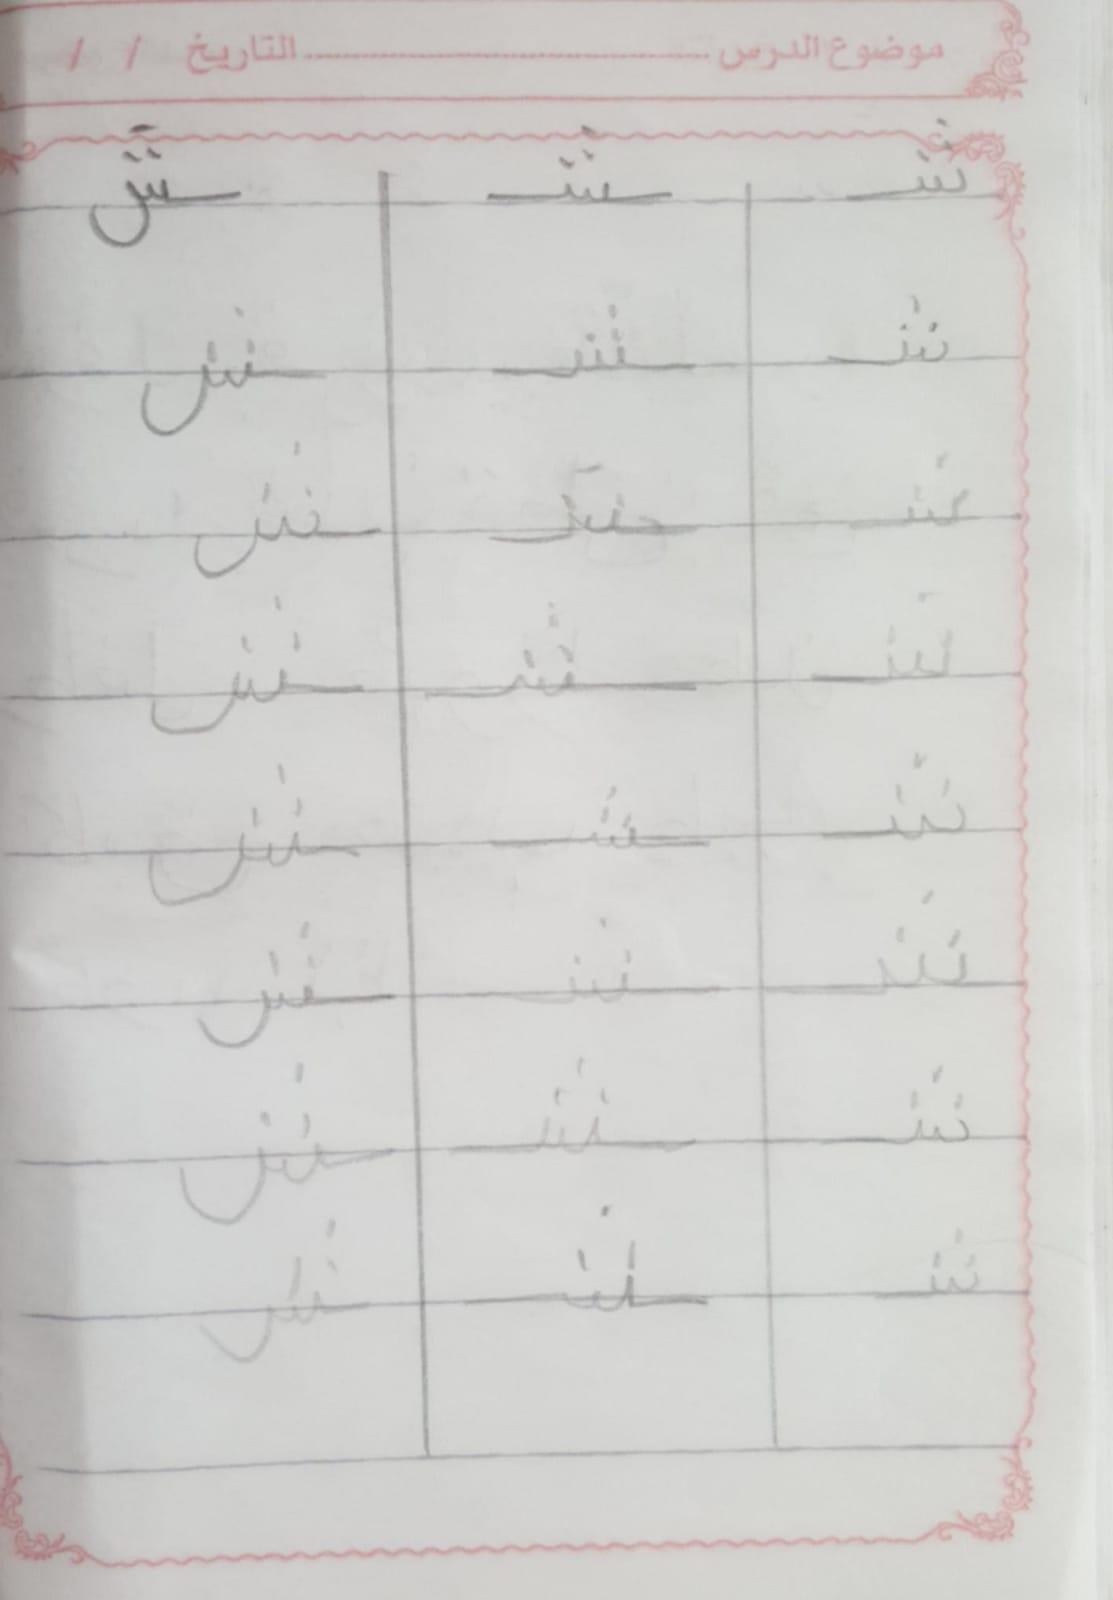 موضوع الدرس ........................ التاريخ / /
شـ ـشـ ـش
شـ ـشـ ـش
شـ ـشـ ـش
شـ ـشـ ـش
شـ ـشـ ـش
شـ ـشـ ـش
شـ ـشـ ـش
شـ ـشـ ـش